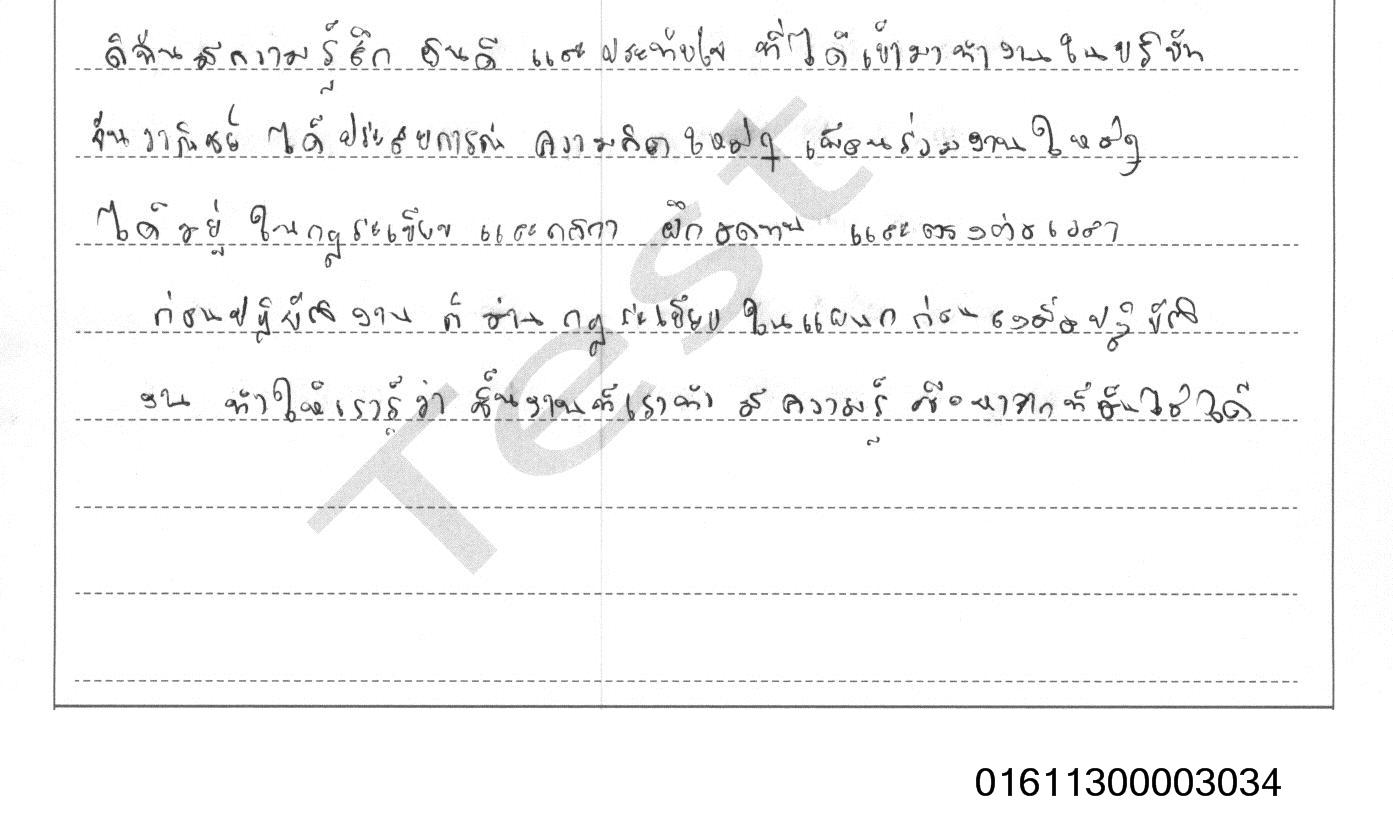 ดิฉันมีความรู้สึก ยินดี และประทับใจ ที่ได้เข้ามาทำงานในบริษัท
ได้ประสบการณ์ ความคิดใหม่ๆ เพื่อนร่วมงานใหม่ๆ
ได้อยู่ ในกฎระเบียบ และกติกา ฝึกอดทน และตรงต่อเวลา
ก่อนปฏิบัติงาน ก็อ่าน กฎระเบียบ ในแผนก ก่อนลงมือปฏิบัติ
งาน ทำให้เรารู้ว่า ชิ้นงานที่เราทำ มีความรู้
Test
01611300003034